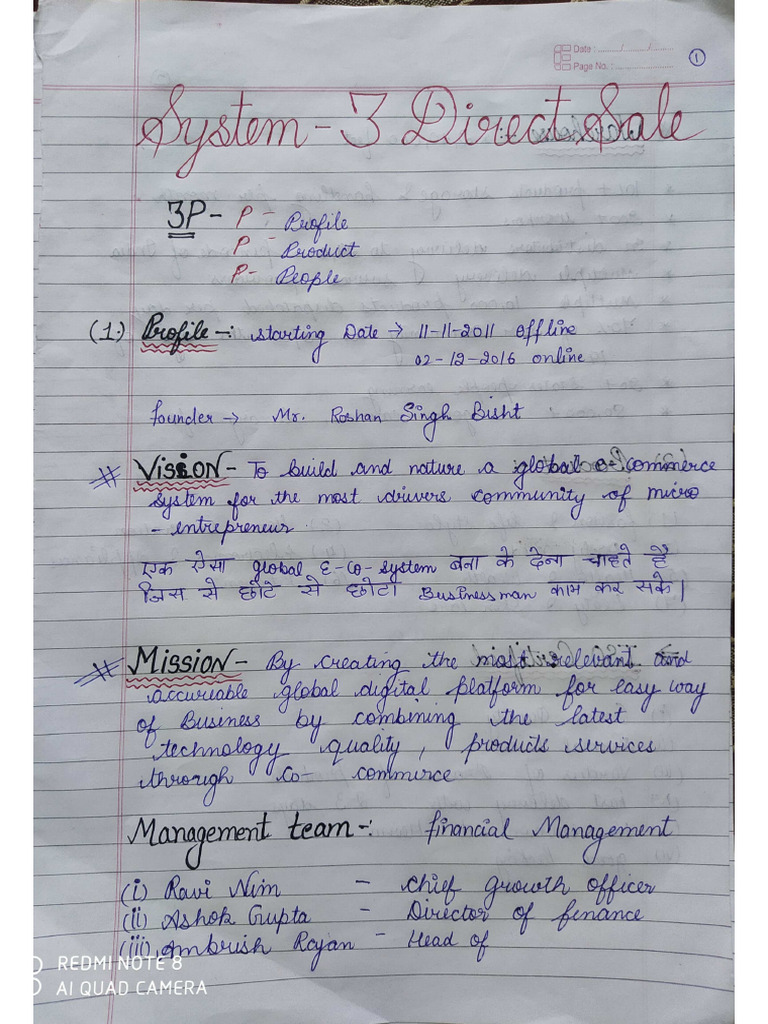 Date : ....../....../......
Page No. : ..................
1
System - 3 Direct Sale
3P - P - Profile
P - Product
P - People
(1.) Profile -: starting Date → 11-11-2011 offline
02-12-2016 online
founder → Mr. Roshan Singh Bisht
# Vision - To build and nature a global e-commerce
system for the most drivers community of micro
- entrepreneur.
एक ऐसा global E-Co-system बना के देना चाहते हैं
जिस से छोटे से छोटा Businessman काम कर सके।
# Mission - By creating the most relevant and
accuriable global digital platform for easy way
of Business by combining the latest
technology quality, products services
through Co- commerce
Management team -: financial Management
(i) Ravi Nim - chief growth officer
(ii) Ashok Gupta - Director of finance
(iii) Ambrish Rajan - Head of
REDMI NOTE 8
AI QUAD CAMERA